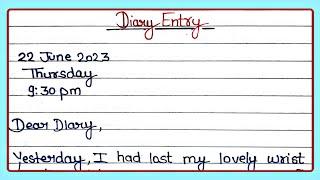 Diary Entry
22 June 2023
Thursday
9:30 pm
Dear Diary,
Yesterday, I had lost my lovely wrist